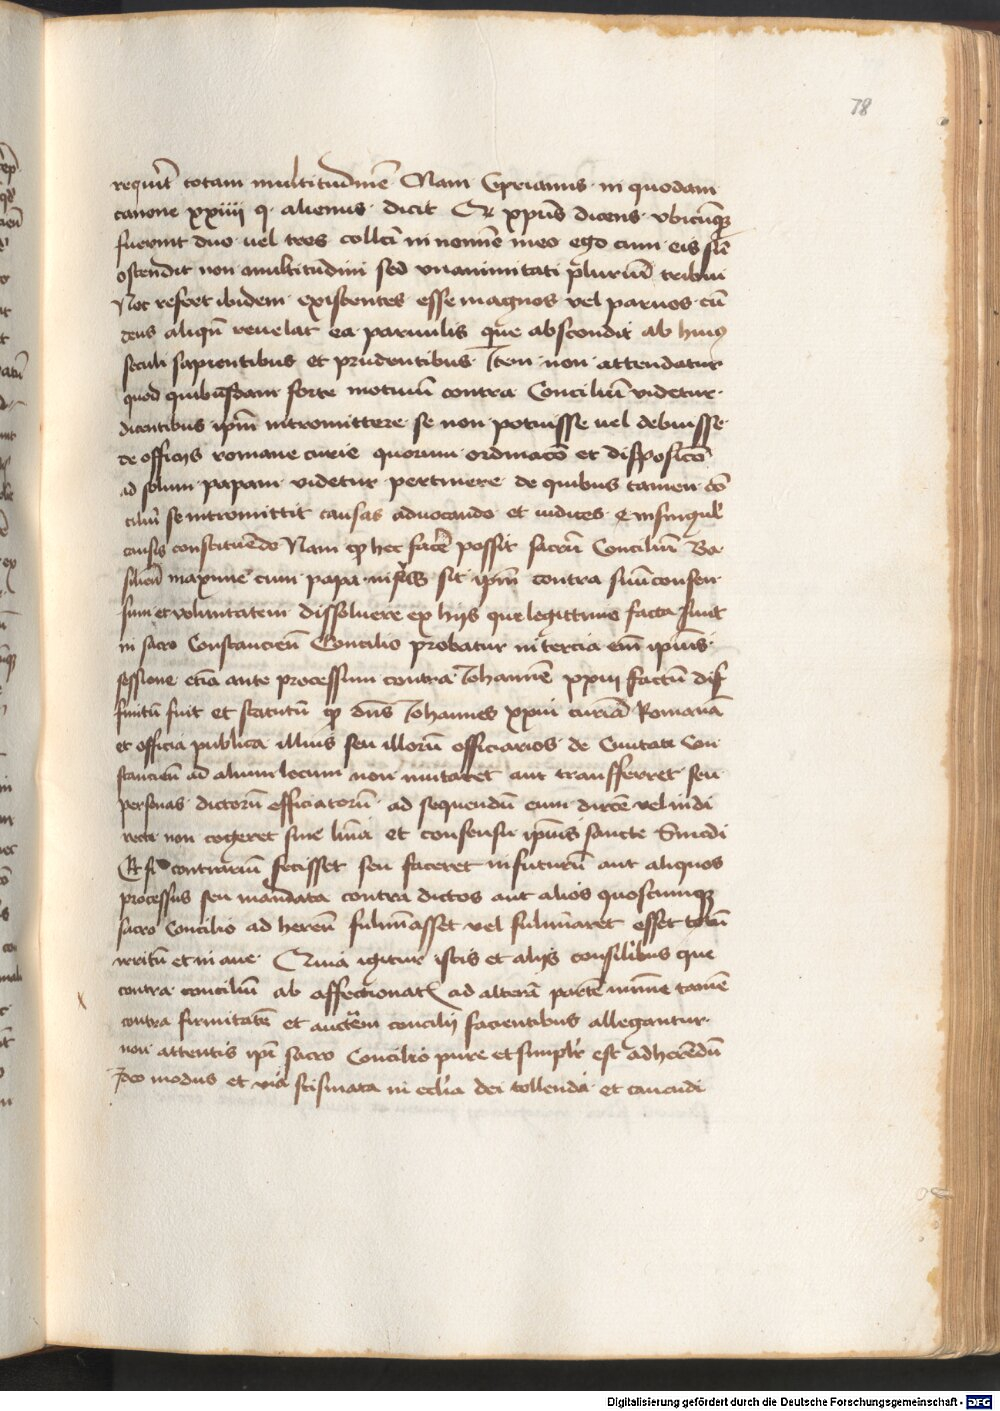 78
requirit totam multitudinē Nam Cyprianus in quodam
canone xxiiii q. alienus dicit Et xpūs dicens vbicūq;
fuerint duo uel tres collcī in nomīe meo ego cum eis sū
ostendit non multitudini sed vnanimitati plurimū tribui
Nec refert ibidem existentes esse magnos vel paruos cū
deus aliqn̄ reuelat ea paruulis que abscondit ab huiꝰ
seculi sapientibus et prudentibus Item non attendatur
quod quibusdam forte motiuū contra Conciliū videtur
dicentibus ipm̄ intromittere se non potuisse uel debuisse
de officijs romane curie quorum ordinacō et disposicō
ad solum papam videtur pertinere de quibus tamen cō
ciliū se intromittit causas aduocando et iudices in singul'
causis constituēdo Nam ꝙ hec facē possit sacrū Conciliū Ba
silien̄ maxime cum papa nisus sit ipm̄ contra suū consen
sum et voluntatem dissoluere ex hijs que legittime facta sunt
in sacro Constancien̄ Concilio probatur in tercia em̄ ipius
sessione etiā ante processum contra Iohannē xxiii factū dif
finitū fuit et statutū ꝙ dn̄s Iohannes xxiii curiā Romanā
et officia publica illius seu illorū officiarios de Ciuitate Con
stancien̄ ad alium locum non mutaret aut transferret seu
personas dictorū officiatorū ad sequendū eum dircē vel indi
recte non cogeret sine lnīa et consensu ipius sancte Sinodi
Et si contrariū fecisset seu faceret in futurū aut aliquos
processus seu mandata contra dictos aut alios quoscumq;
sacro Concilio ad heren̄ fulmīasset vel fulmīaret esset totū
irritū et inane Quia igitur istis et alijs consilibus que
contra conciliū ab affectionat ad alterā partē nimīe tamē
contra firmitatē et auctēm concilij facientibus allegantur
non attentis ipi sacro Concilio pure et simplr̄ est adherēdū
Ideo modus et via scismata in eccl'ia dei tollenda et cauendi
Digitalisierung gefördert durch die Deutsche Forschungsgemeinschaft - DFG